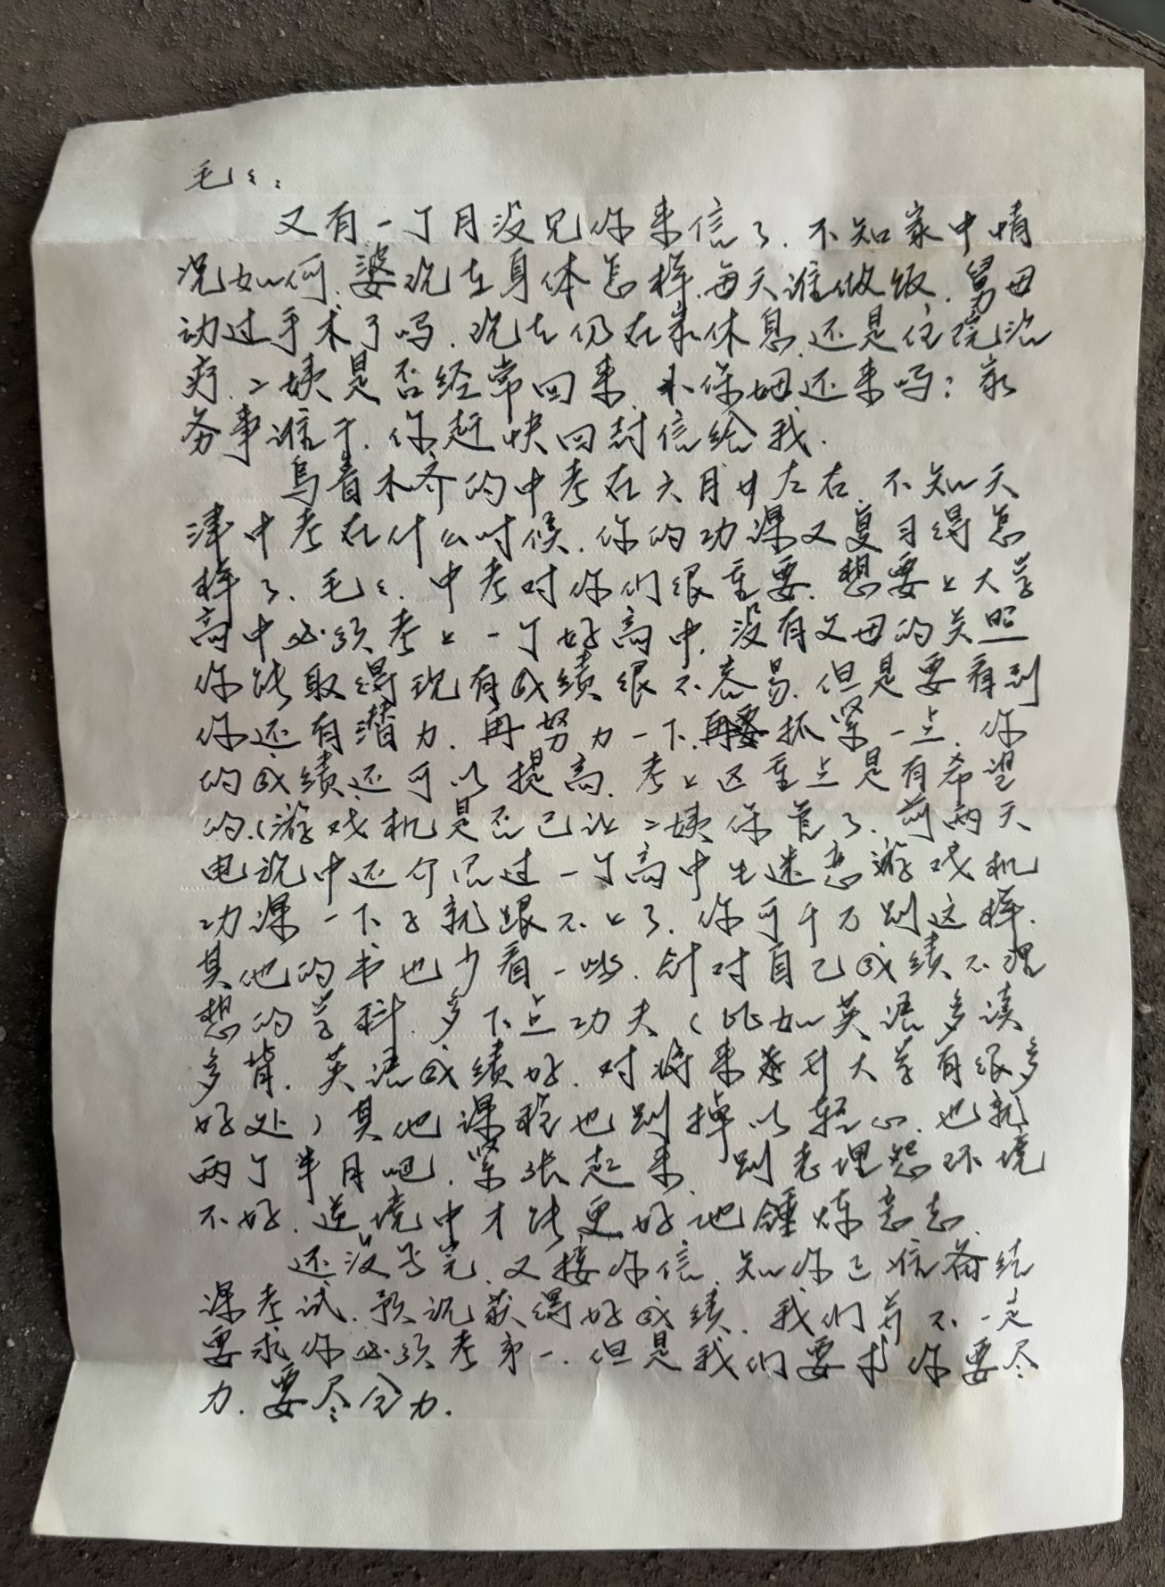 毛毛：
又有一个月没见你来信了.不知家中情
况如何.婆现在身体怎样.每天谁做饭.舅母
动过手术了吗.现在仍在家休息.还是住院治
疗.二姨是否经常回来.小保姆还来吗?家
务事谁干.你赶快回封信给我.
乌鲁木齐的中考在六月廿左右.不知天
津中考在什么时候.你的功课又复习得怎
样了.毛毛.中考对你们很重要.想要上大学
高中必须考上一个好高中.没有父母的关照
你能取得现有成绩很不容易.但是要看到
你还有潜力.再努力一下.再抓紧一点.你
的成绩还可以提高.考上区重点是有希望
的.(游戏机是否已让二姨保管了.前两天
电视中还介绍过一个高中生迷恋游戏机
功课一下子就跟不上了.你可千万别这样.
其他的书也少看一些.针对自己成绩不理
想的学科.多下点功夫(比如英语多读
多背.英语成绩好.对将来升大学有很多
好处)其他课程也别掉以轻心.也就
两个半月吧.紧张起来.别老埋怨环境
不好.逆境中才能更好地锤炼意志.
还没写完.又接你信.知你正准备结
课考试.预祝获得好成绩.我们并不一定
要求你必须考第一.但是我们要求你要尽
力.要尽全力.